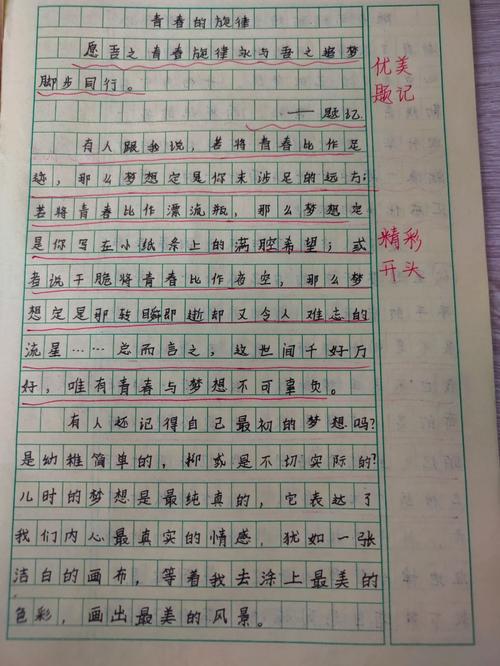 青春的旋律
愿吾之青春旋律永与吾之追梦
脚步同行。
——题记
有人跟我说，若将青春比作足
迹，那么梦想定是你未涉足的远方；
若将青春比作漂流瓶，那么梦想定
是你写在小纸条上的满腔希望；或
者说干脆将青春比作夜空，那么梦
想定是那转瞬即逝却又令人难忘的
流星……总而言之，这世间千好万
好，唯有青春与梦想不可辜负。
有人还记得自己最初的梦想吗?
是幼稚简单的，抑或是不切实际的?
儿时的梦想是最纯真的，它表达了
我们内心最真实的情感，犹如一张
洁白的画布，等着我去涂上最美的
色彩，画出最美的风景。
优美
题记
精彩
开头